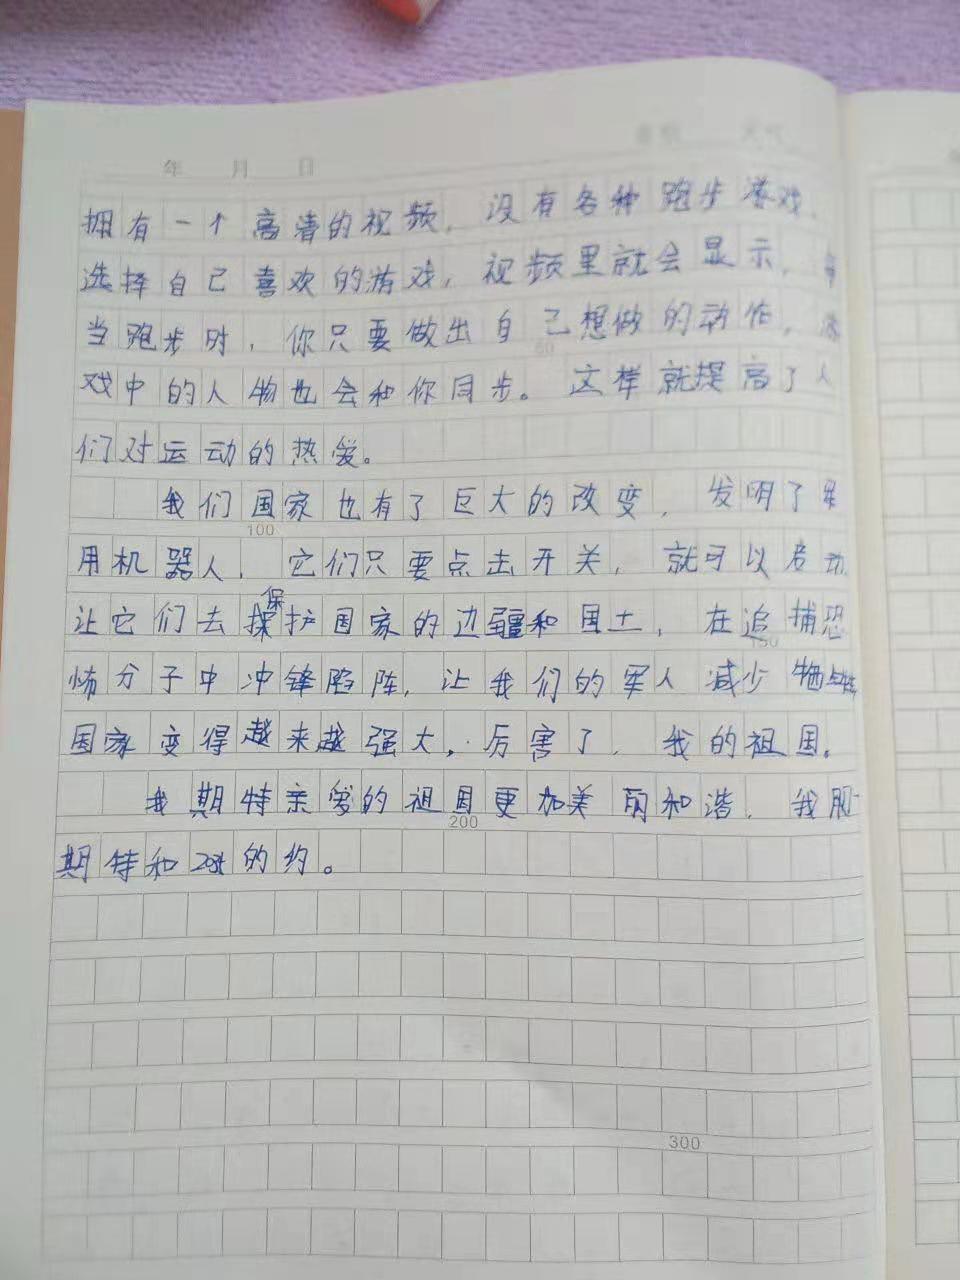 年 月 日
拥有一个高清的视频，没有各种跑步游戏，
选择自己喜欢的游戏，视频里就会显示，
当跑步时，你只要做出自己想做的动作，
戏中的人物也会和你同步。这样就提高了人
们对运动的热爱。
我们国家也有了巨大的改变，发明了军
100
用机器人，它们只要点击开关，就可以启动，
让它们去保护国家的边疆和国土，在追捕恐
150
怖分子中冲锋陷阵，让我们的军人减少牺牲
国家变得越来越强大，厉害了，我的祖国。
我期待亲爱的祖国更加美丽和谐，我
200
期待和 的约。
300